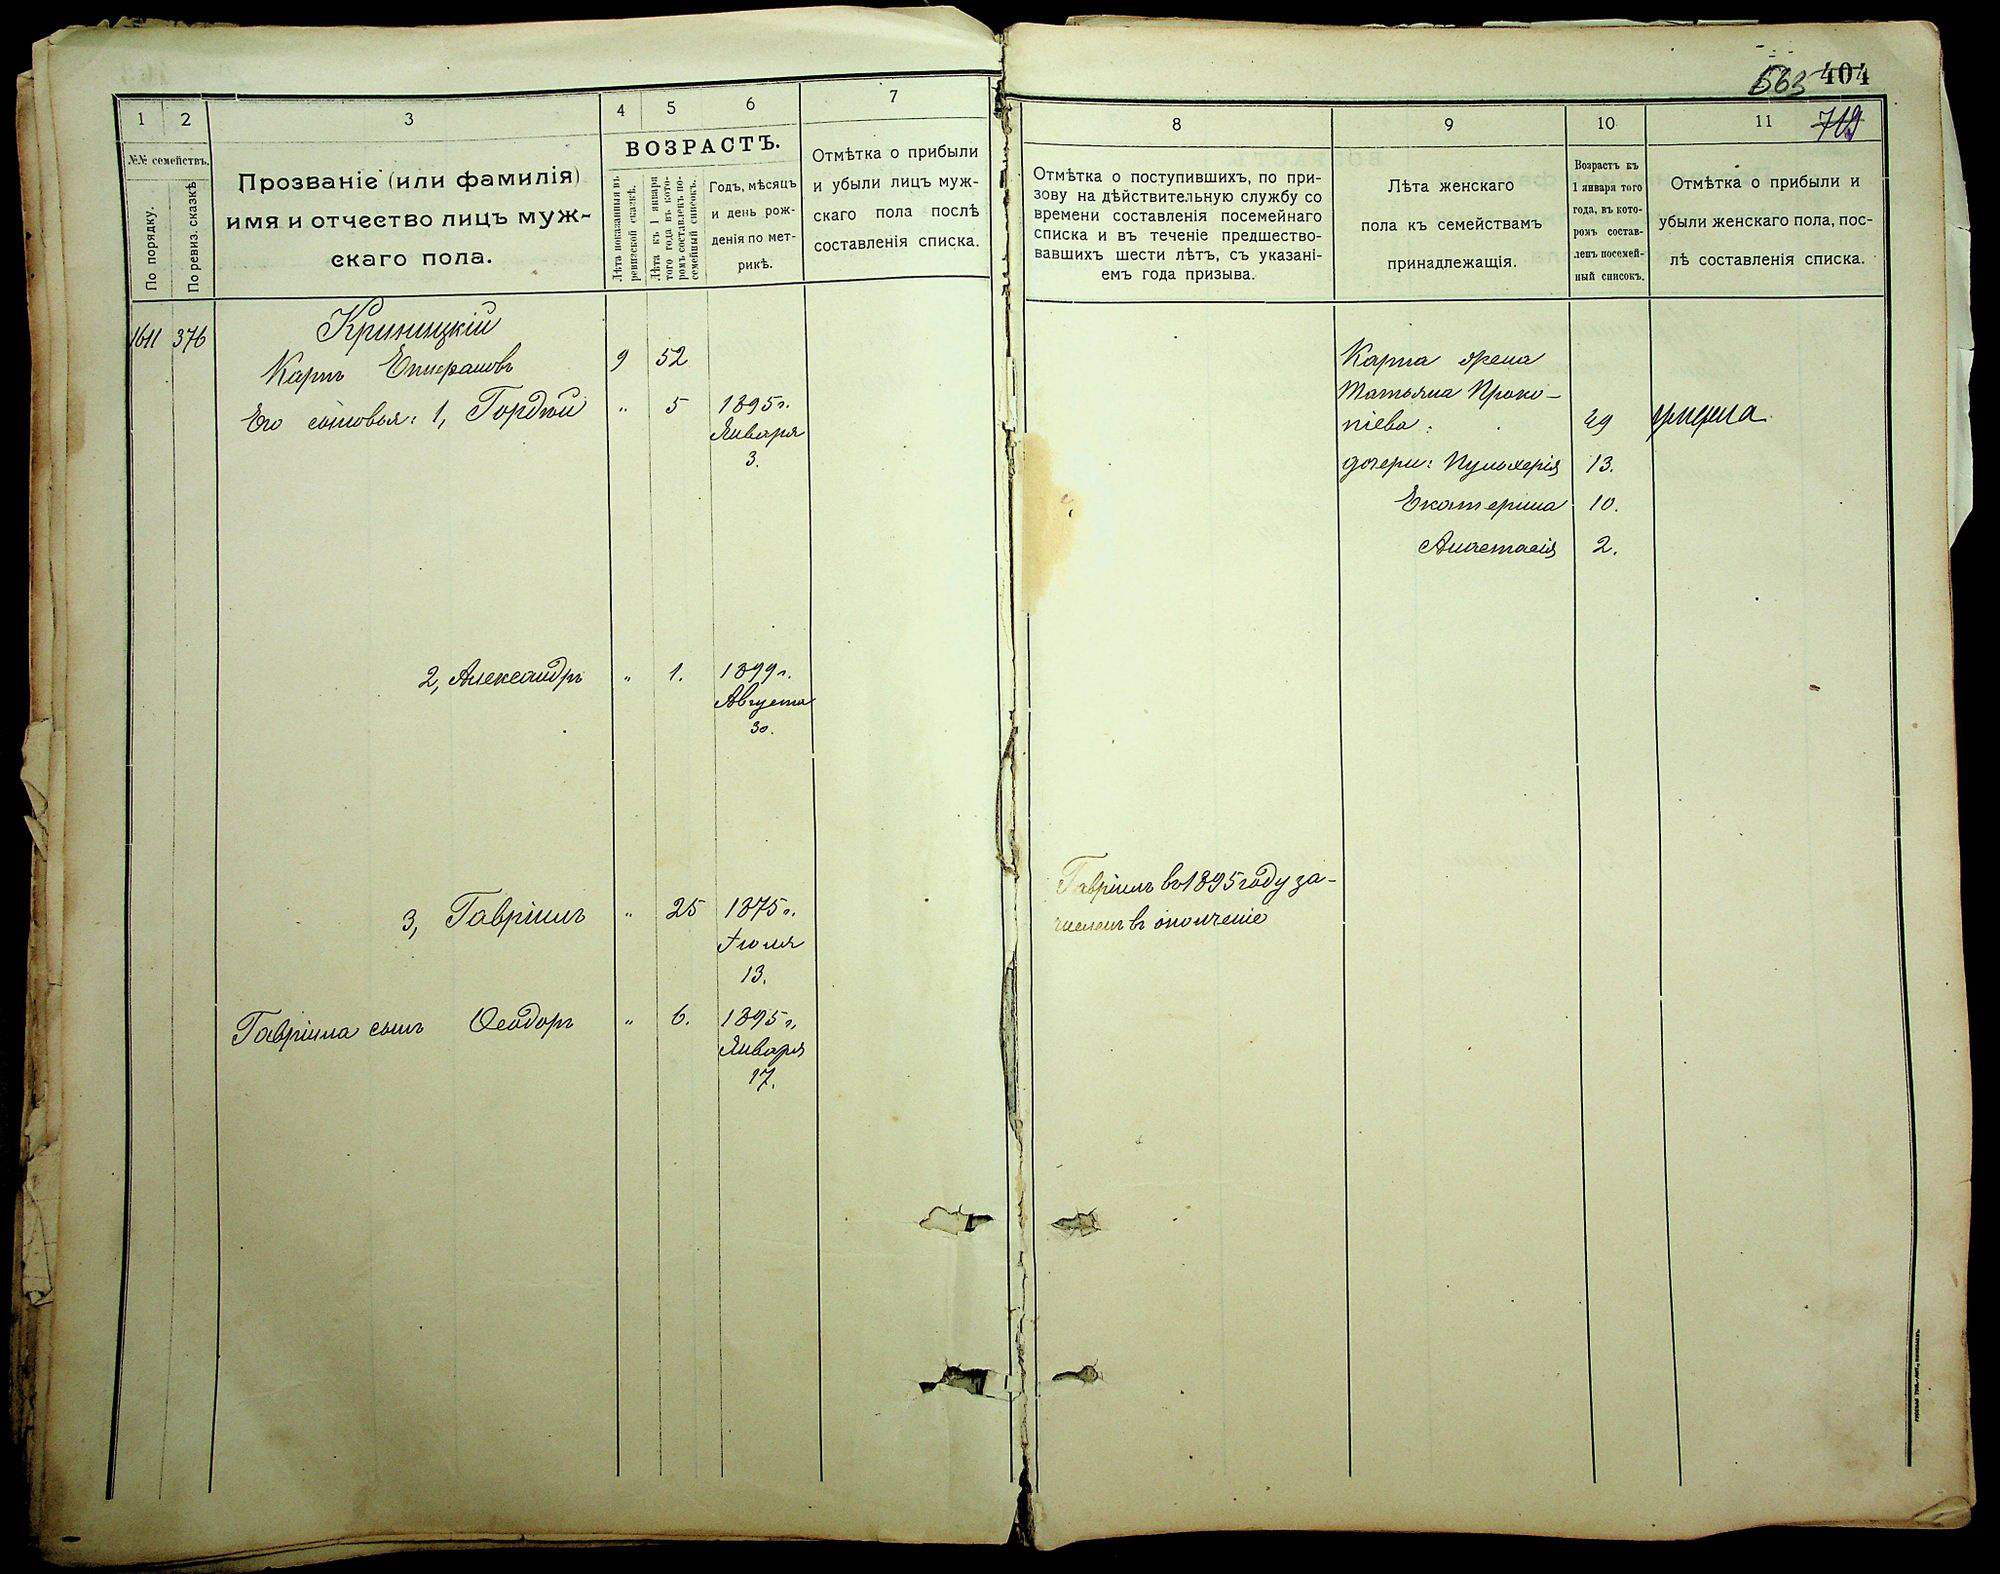 1
2
3
4
5
6
7
№№ семействъ.
По порядку.
По ревиз. сказкѣ
Прозваніе (или фамилія)
имя и отчество лицъ муж-
скаго пола.
ВОЗРАСТЪ.
Лѣта показанныя въ
ревизской сказкѣ.
Лѣта къ 1 января
того года въ кото-
ромъ составленъ по-
семейный списокъ.
Годъ, мѣсяцъ
и день рож-
денія по мет-
рикѣ.
Отмѣтка о прибыли
и убыли лицъ муж-
скаго пола послѣ
составленія списка.
1611 376 Криницкій
Карпъ 9 52
Его сыновья: 1, Гордѣй " 5 1895 г.
Января
3.
2, Александръ " 1. 1899 г.
Августа
30.
3, Гавріилъ " 25 1875 г.
Іюля
13.
Гавріила сынъ Ѳеодоръ " 6. 1895 г.
Января
17.
563 404
719
8
9
10
11
Отмѣтка о поступившихъ, по при-
зову на дѣйствительную службу со
времени составленія посемейнаго
списка и въ теченіе предшество-
вавшихъ шести лѣтъ, съ указані-
емъ года призыва.
Лѣта женскаго
пола къ семействамъ
принадлежащія.
Возрастъ къ
1 января того
года, въ кото-
ромъ состав-
ленъ посемей-
ный списокъ.
Отмѣтка о прибыли и
убыли женскаго пола, пос-
лѣ составленія списка.
Карпа жена
Татьяна Проко-
піева. 49
дочери: Пульхерія 13.
Екатерина 10.
Анастасія 2.
Гавріилъ въ 1895 году за-
численъ въ ополченіе